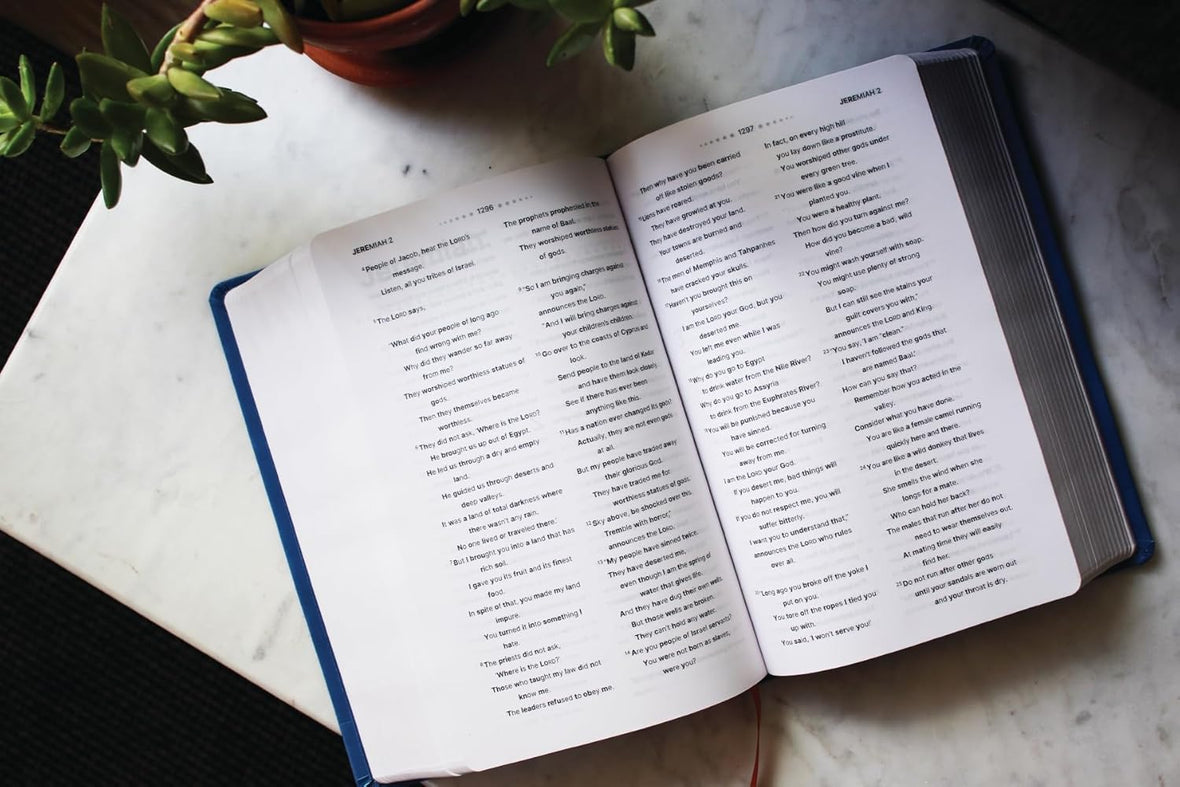 1296
JEREMIAH 2
4 "People of Jacob, hear the LORD's
message.
Listen, all you tribes of Israel.
5 The LORD says,
"What did your people of long ago
find wrong with me?
Why did they wander so far away
from me?
They worshiped worthless statues of
gods.
Then they themselves became
worthless.
6 They did not ask, 'Where is the LORD?
He brought us up out of Egypt.
He led us through a dry and empty
land.
He guided us through deserts and
deep valleys.
It was a land of total darkness where
there wasn't any rain.
No one lived or traveled there.'
7 But I brought you into a land that has
rich soil.
I gave you its fruit and its finest
food.
In spite of that, you made my land
impure.
You turned it into something I
hate.
8 The priests did not ask,
'Where is the LORD?'
Those who taught my law did not
know me.
The leaders refused to obey me.
The prophets prophesied in the
name of Baal.
They worshiped worthless statues
of gods.
9 "So I am bringing charges against
you again,"
announces the LORD.
"And I will bring charges against
your children's children.
10 Go over to the coasts of Cyprus and
look.
Send people to the land of Kedar
and have them look closely.
See if there has ever been
anything like this.
11 Has a nation ever changed its gods?
Actually, they are not even gods
at all.
But my people have traded away
their glorious God.
They have traded me for
worthless statues of gods.
12 Sky above, be shocked over this.
Tremble with horror,"
announces the LORD.
13 "My people have sinned twice.
They have deserted me,
even though I am the spring of
water that gives life.
And they have dug their own wells.
But those wells are broken.
They can't hold any water.
14 Are you people of Israel servants?
You were not born as slaves,
were you?
1297
JEREMIAH 2
Then why have you been carried
off like stolen goods?
15 Lions have roared.
They have growled at you.
They have destroyed your land.
Your towns are burned and
deserted.
16 The men of Memphis and Tahpanhes
have cracked your skulls.
17 Haven't you brought this on
yourselves?
I am the LORD your God, but you
deserted me.
You left me even while I was
leading you.
18 Why do you go to Egypt
to drink water from the Nile River?
Why do you go to Assyria
to drink from the Euphrates River?
19 You will be punished because you
have sinned.
You will be corrected for turning
away from me.
I am the LORD your God.
If you desert me, bad things will
happen to you.
If you do not respect me, you will
suffer bitterly.
I want you to understand that,"
announces the LORD who rules
over all.
20 "Long ago you broke off the yoke I
put on you.
You tore off the ropes I tied you
up with.
You said, 'I won't serve you!'
In fact, on every high hill
you lay down like a prostitute.
You worshiped other gods under
every green tree.
21 You were like a good vine when I
planted you.
You were a healthy plant.
Then how did you turn against me?
How did you become a bad, wild
vine?
22 You might wash yourself with soap.
You might use plenty of strong
soap.
But I can still see the stains your
guilt covers you with,"
announces the LORD and King.
23 "You say, 'I am "clean."
I haven't followed the gods that
are named Baal.'
How can you say that?
Remember how you acted in the
valley.
Consider what you have done.
You are like a female camel running
quickly here and there.
24 You are like a wild donkey that lives
in the desert.
She smells the wind when she
longs for a mate.
Who can hold her back?
The males that run after her do not
need to wear themselves out.
At mating time they will easily
find her.
25 Do not run after other gods
until your sandals are worn out
and your throat is dry.